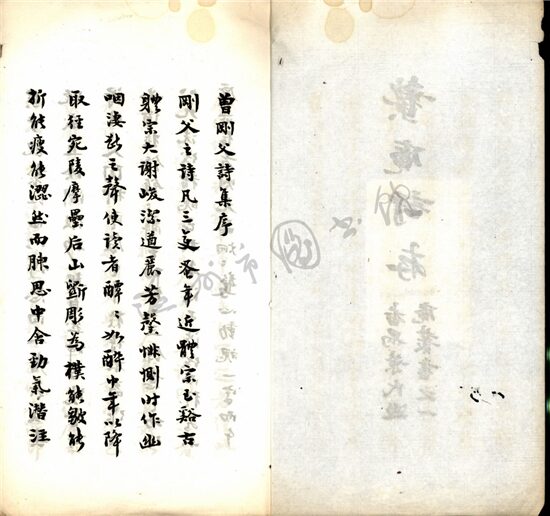 蟄庵詩存
番禺葉氏遐
庵叢書之一
曾剛父詩集序
剛父之詩凡三變蚤年近體宗玉谿古
體宗大謝峻潔遒麗芳馨悱惻時作幽
咽淒斷之聲使讀者醰〻如醉中年以降
取徑宛陵摩壘后山斲彫為樸能皺能
折能瘦能澀然而腴思中含勁氣潛注